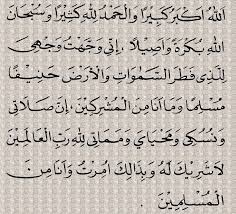 اَللهُ اَكْبَرُ كَبِيْرًا وَالْحَمْدُ لِلّٰهِ كَثِيْرًا وَسُبْحَانَ
اللهِ بُكْرَةً وَاَصِيْلًا . اِنِّى وَجَّهْتُ وَجْهِيَ
لِلَّذِى فَطَرَ السَّمٰوَاتِ وَالْاَرْضَ حَنِيْفًا
مُسْلِمًا وَمَا اَنَا مِنَ الْمُشْرِكِيْنَ . اِنَّ صَلَاتِى
وَنُسُكِى وَمَحْيَاىَ وَمَمَاتِى لِلّٰهِ رَبِّ الْعَالَمِيْنَ
لَا شَرِيْكَ لَهُ وَبِذَالِكَ اُمِرْتُ وَاَنَا مِنَ
الْمُسْلِمِيْنَ .